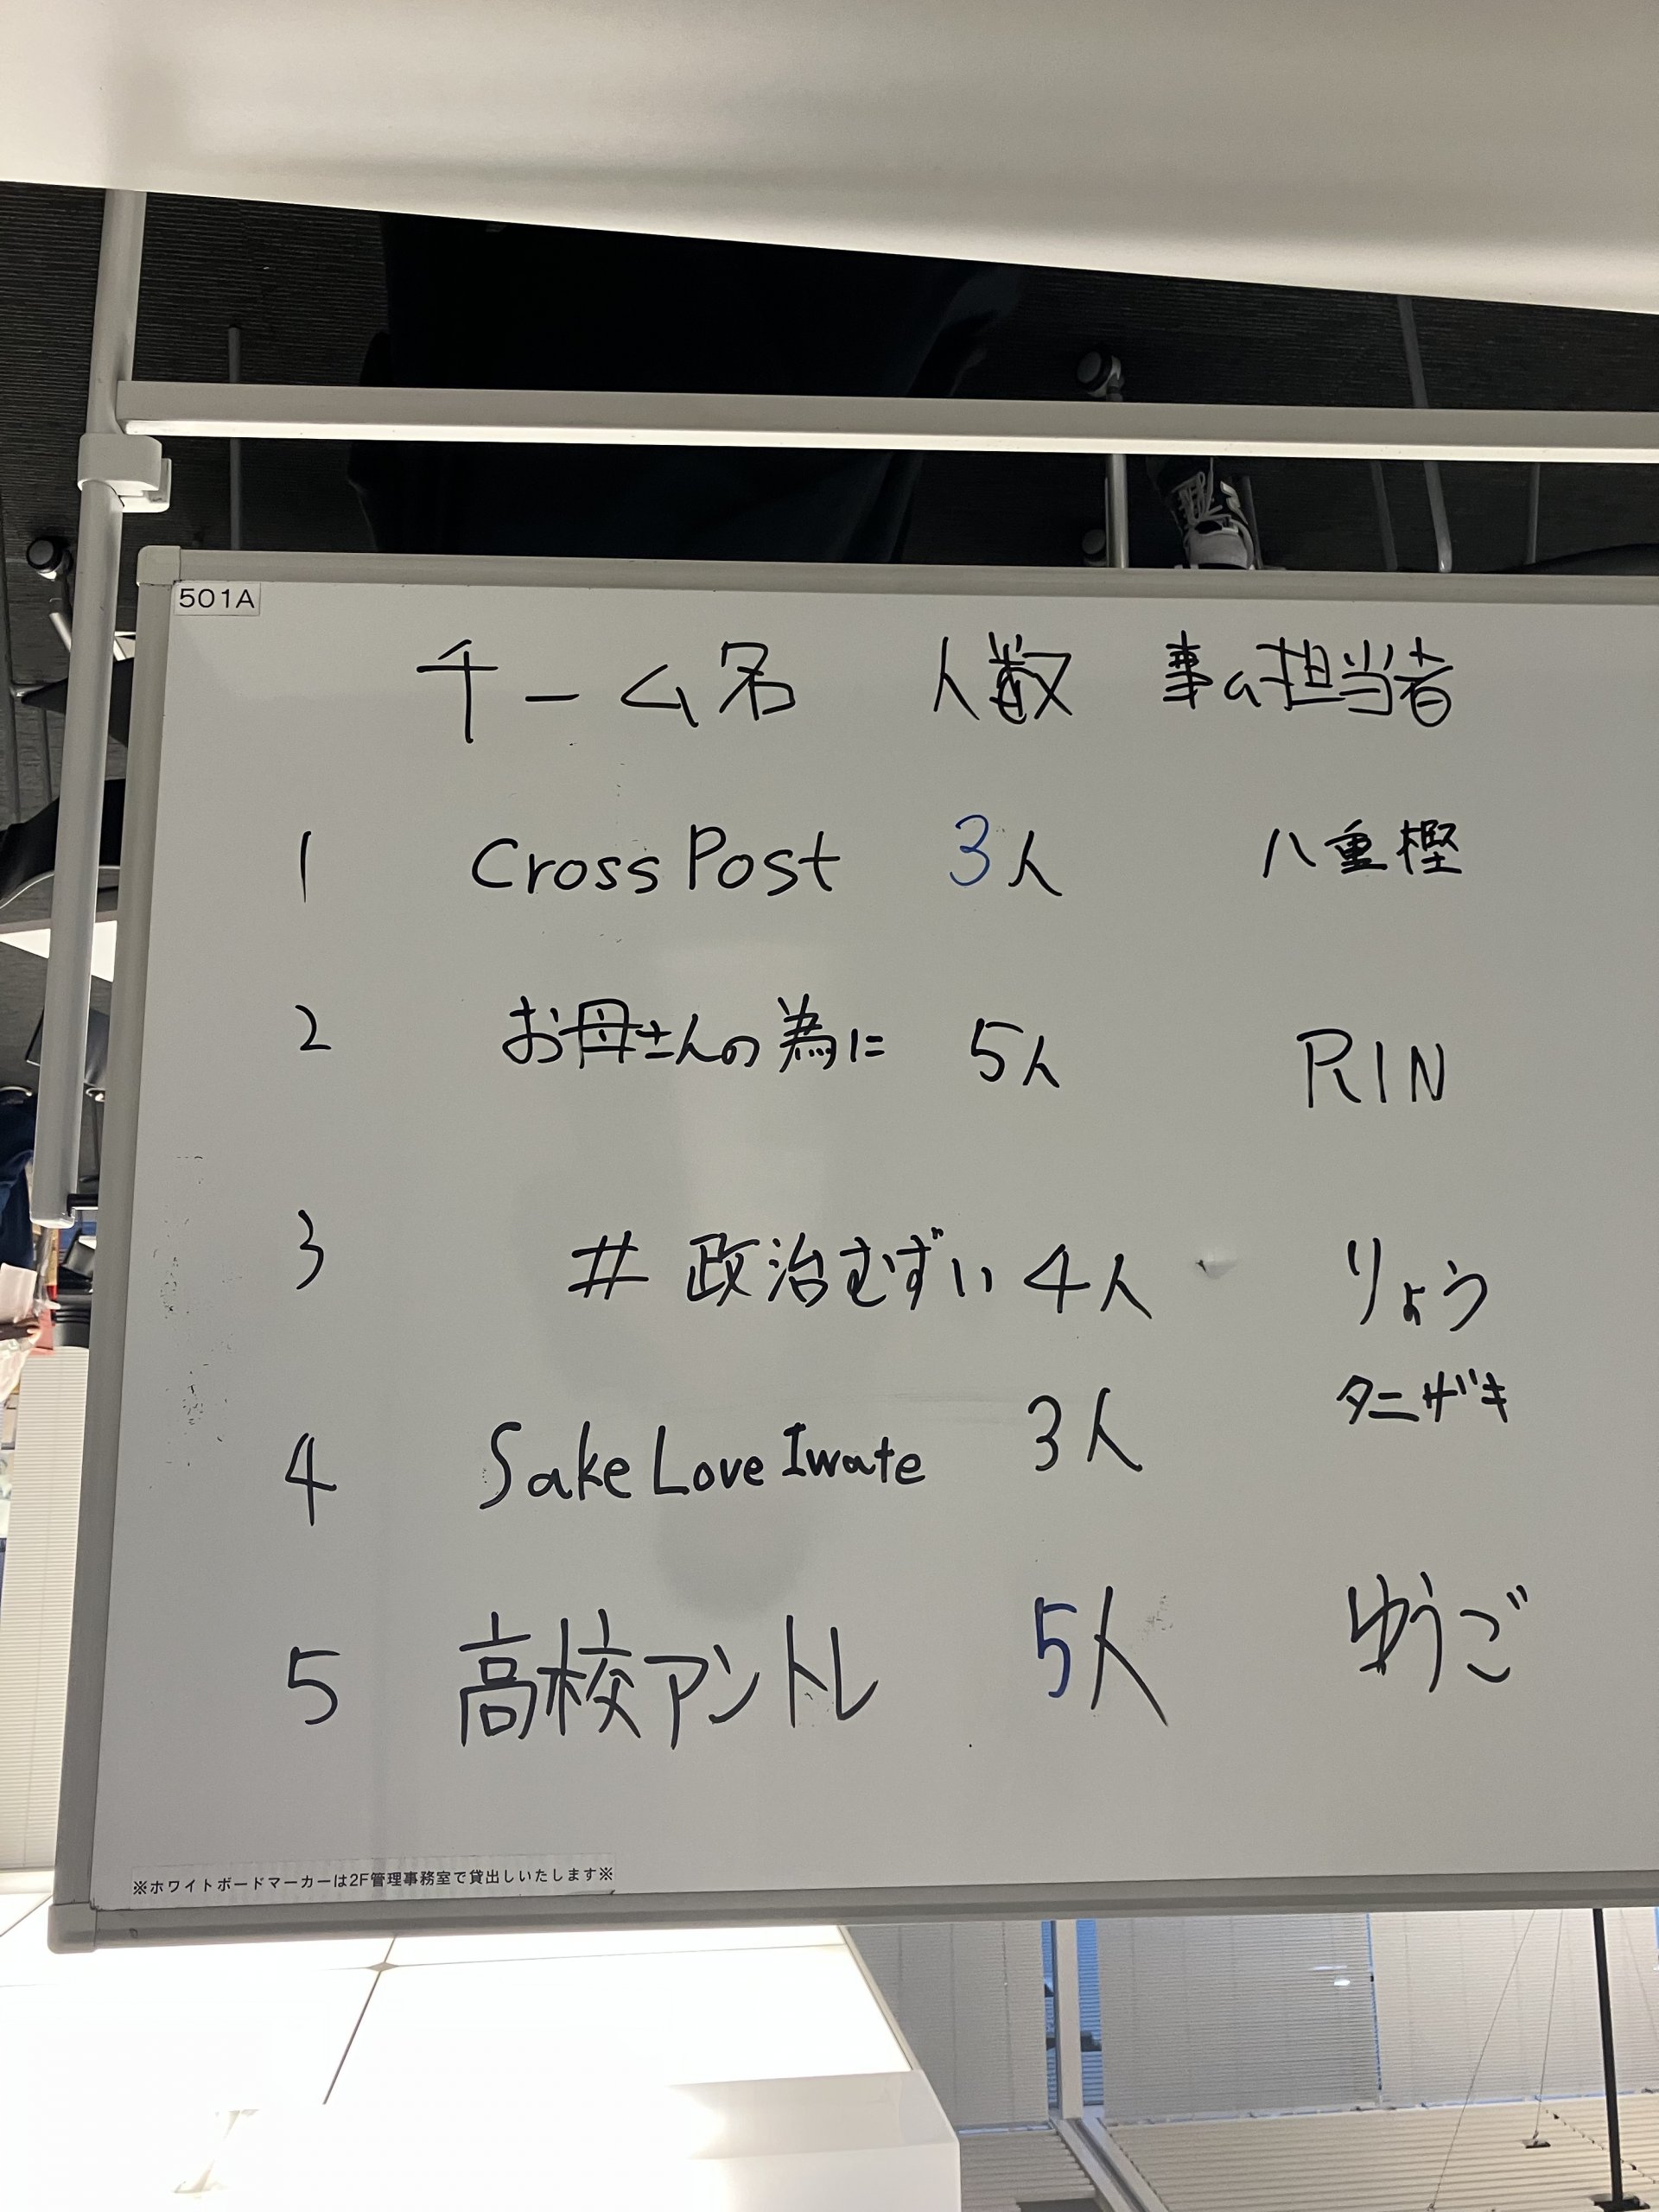 501A
チーム名 人数 事ム担当者
1 Cross Post 3人 八重樫
2 お母さんの為に 5人 RIN
3 # 政治むずい 4人 りょう
4 Sake Love Iwate 3人 タニザキ
5 高校アントレ 5人 ゆうご
※ホワイトボードマーカーは2F管理事務室で貸出しいたします※